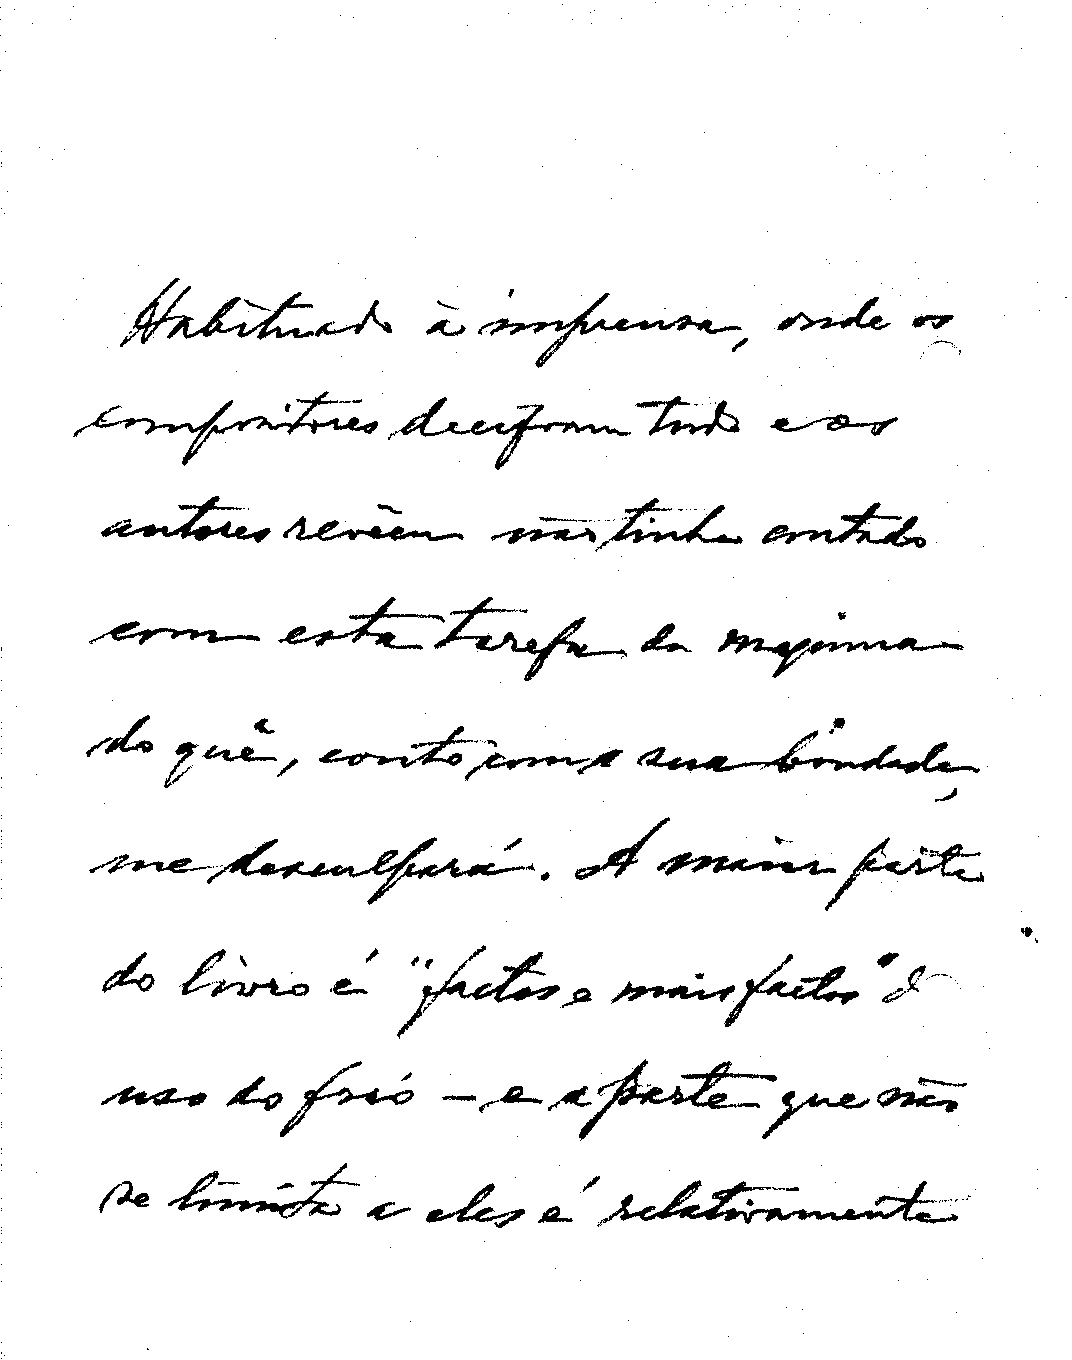 Habituado à imprensa, onde os
compositores decifram tudo e os
autores revêem não tinha contado
com esta tarefa da maquina
do quê, conto com a sua bondade,
me desculpará. A maior parte
do livro é "factos e mais factos"
uso do frio – e a parte que não
se limita a eles é relativamente